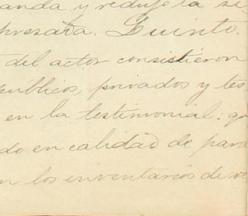 anda y redujo la se
presada. Quinto.
del actor consistieron
públicos, privados y tes
en la testimonial: q
do en calidad de para
n los inventarios de